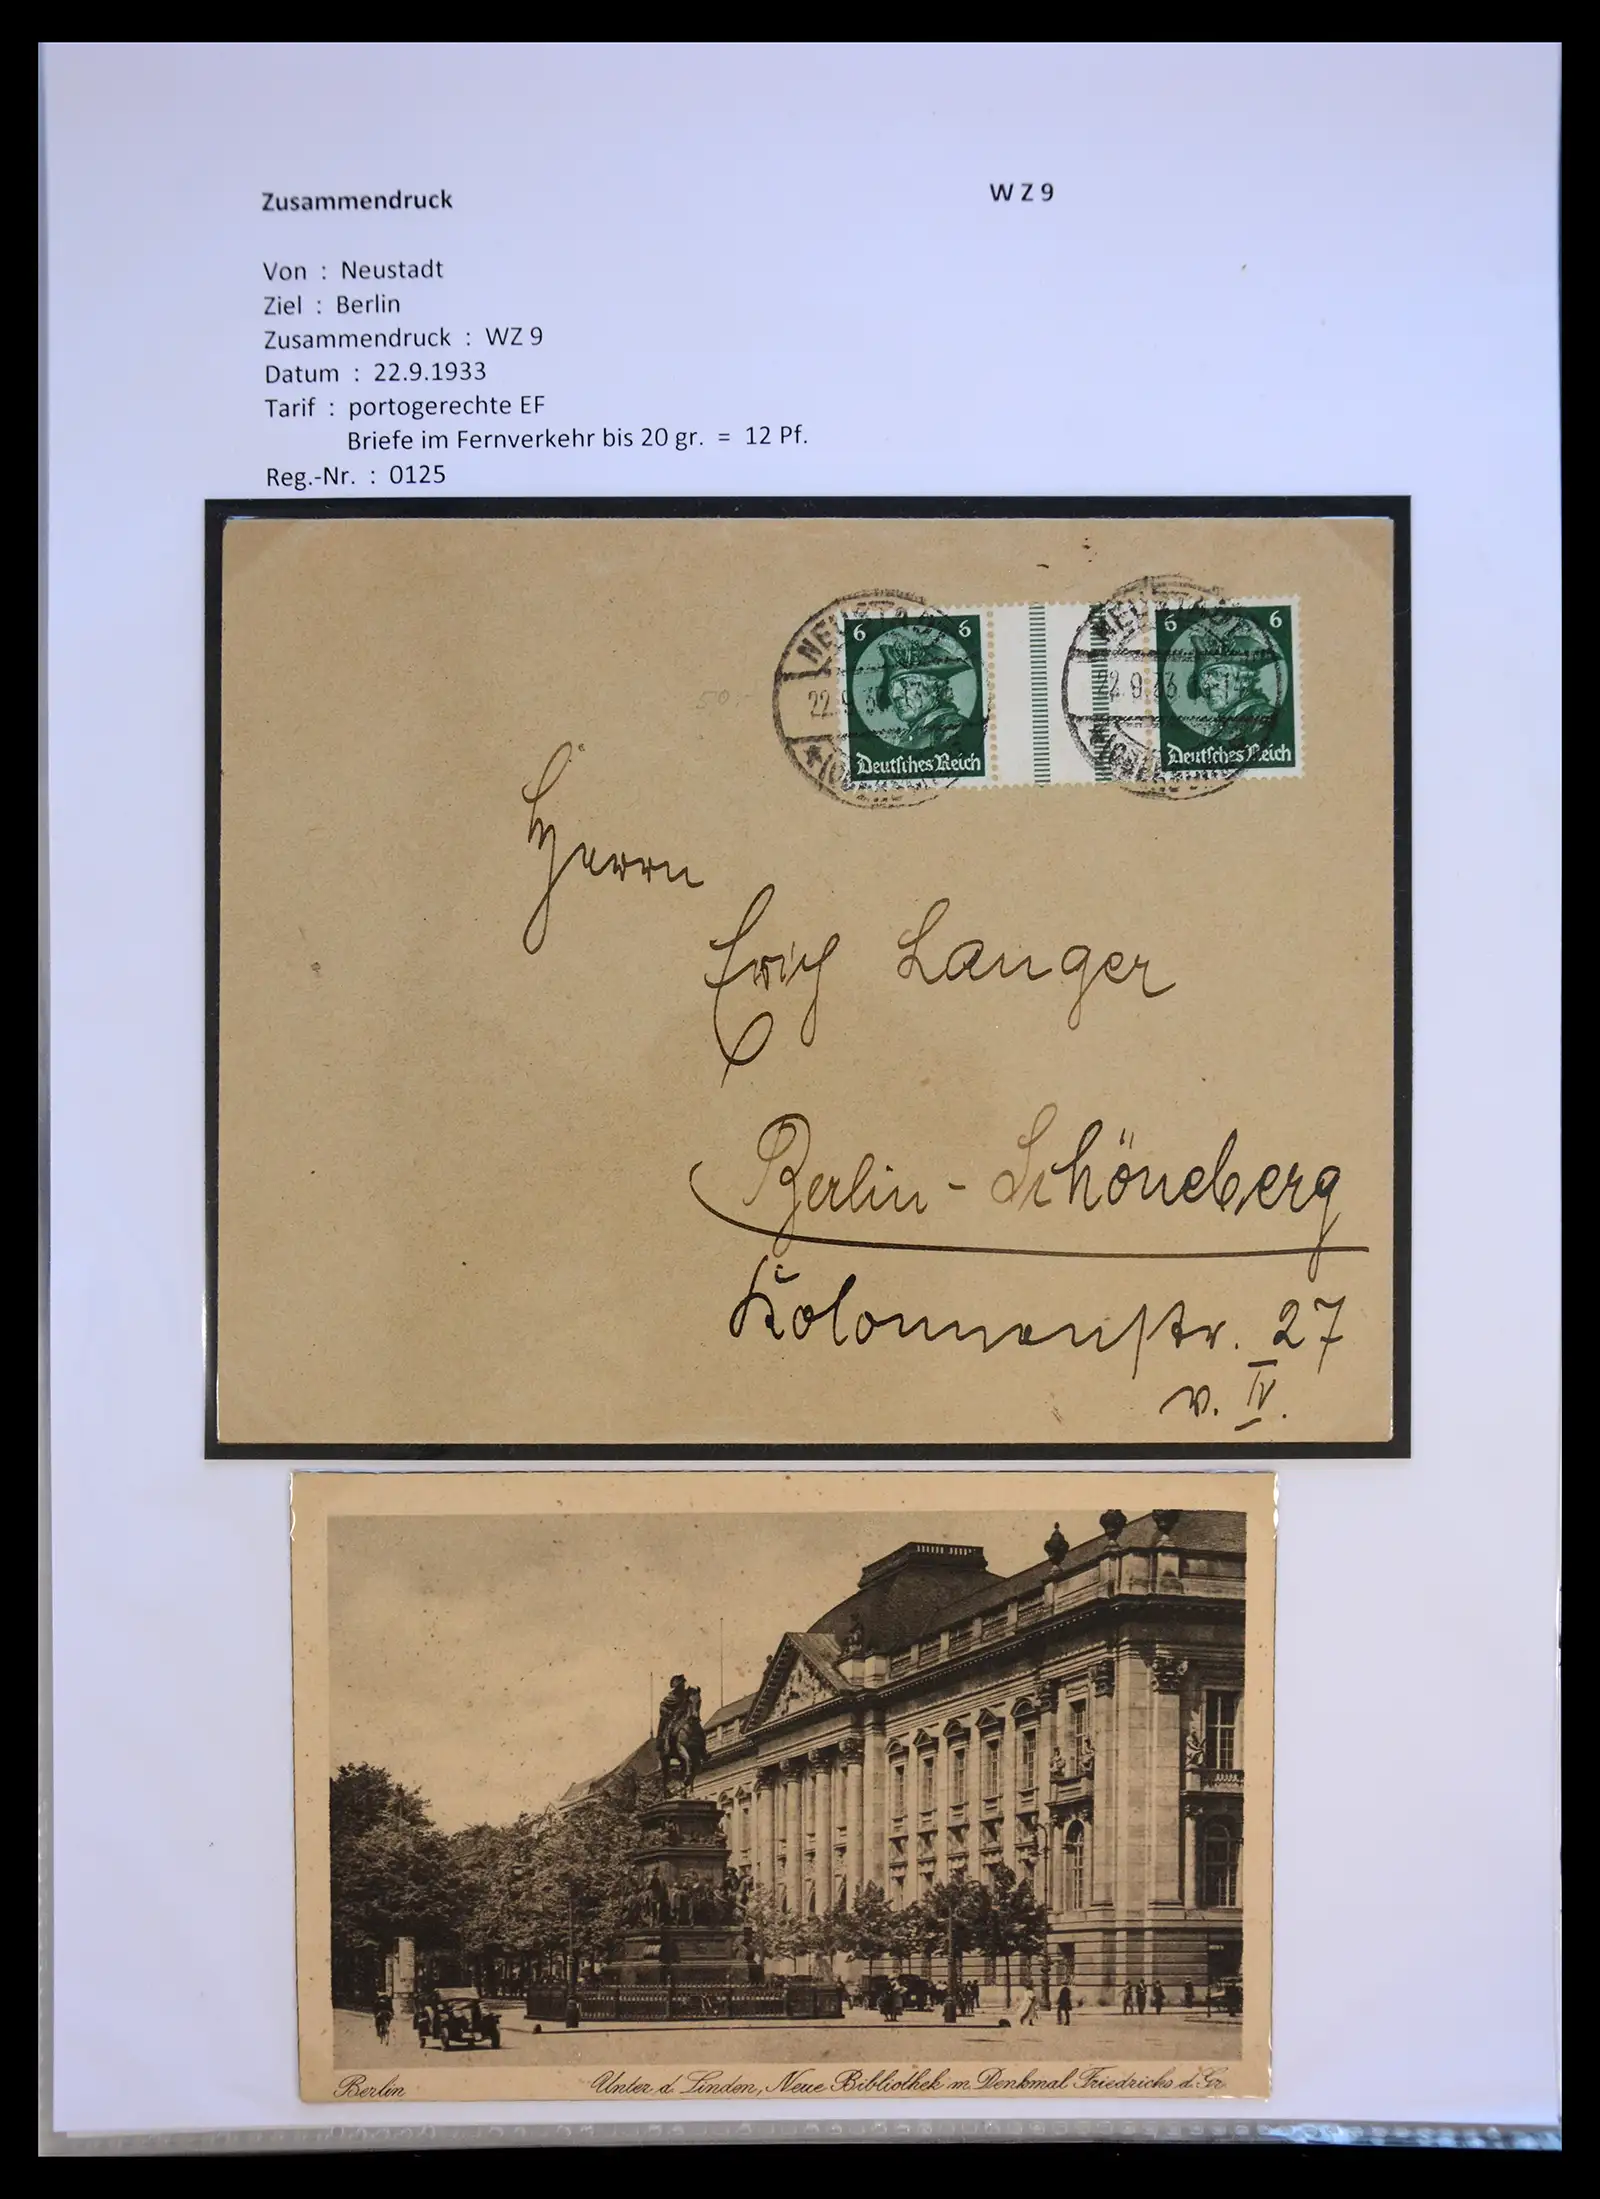 Zusammendruck
W Z 9
Von : Neustadt
Ziel : Berlin
Zusammendruck : WZ 9
Datum : 22.9.1933
Tarif : portogerechte EF
Briefe im Fernverkehr bis 20 gr. = 12 Pf.
Reg.-Nr. : 0125
6 6
6 6
NEUSTADT
NEUSTADT
22.9.33
22.9.33
Deutsches Reich
Deutsches Reich
50.-
Herrn
Erich Langer
Berlin - Schöneberg
Kolonnenstr. 27
v. IV.
Berlin
Unter d. Linden, Neue Bibliothek m. Denkmal Friedrichs d. Gr.